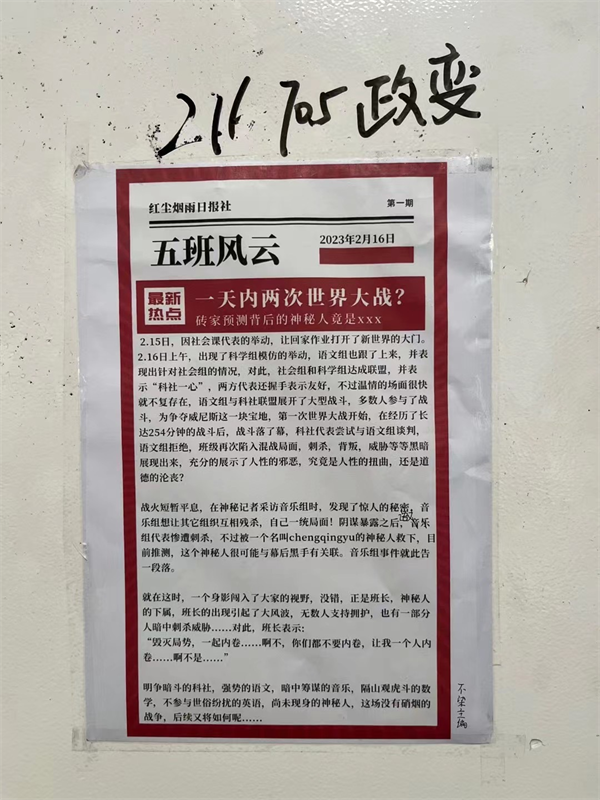 211 705 政变
红尘烟雨日报社
第一期
五班风云
2023年2月16日
最新
热点
一天内两次世界大战？
砖家预测背后的神秘人竟是xxx
2.15日，因社会课代表的举动，让回家作业打开了新世界的大门。
2.16日上午，出现了科学组模仿的举动，语文组也跟了上来，并表
现出针对社会组的情况，对此，社会组和科学组达成联盟，并表
示“科社一心”，两方代表还握手表示友好，不过温情的场面很快
就不复存在，语文组与科社联盟展开了大型战斗，多数人参与了战
斗，为争夺威尼斯这一块宝地，第一次世界大战开始，在经历了长
达254分钟的战斗后，战斗落了幕，科社代表尝试与语文组谈判，
语文组拒绝，班级再次陷入混战局面，刺杀，背叛，威胁等等黑暗
展现出来，充分的展示了人性的邪恶，究竟是人性的扭曲，还是道
德的沦丧？
战火短暂平息，在神秘记者采访音乐组时，发现了惊人的秘密，音
乐组想让其它组织互相残杀，自己一统局面！阴谋暴露之后，音乐
组代表惨遭刺杀，不过被一个名叫chengqingyu的神秘人救下，目
前推测，这个神秘人很可能与幕后黑手有关联。音乐组事件就此告
一段落。
就在这时，一个身影闯入了大家的视野，没错，正是班长，神秘人
的下属，班长的出现引起了大风波，无数人支持拥护，也有一部分
人暗中刺杀威胁……对此，班长表示：
“毁灭局势，一起内卷……啊不，你们都不要内卷，让我一个人内
卷……啊不是……”
明争暗斗的科社，强势的语文，暗中筹谋的音乐，隔山观虎斗的数
学，不参与世俗纷扰的英语，尚未现身的神秘人，这场没有硝烟的
战争，后续又将如何呢……